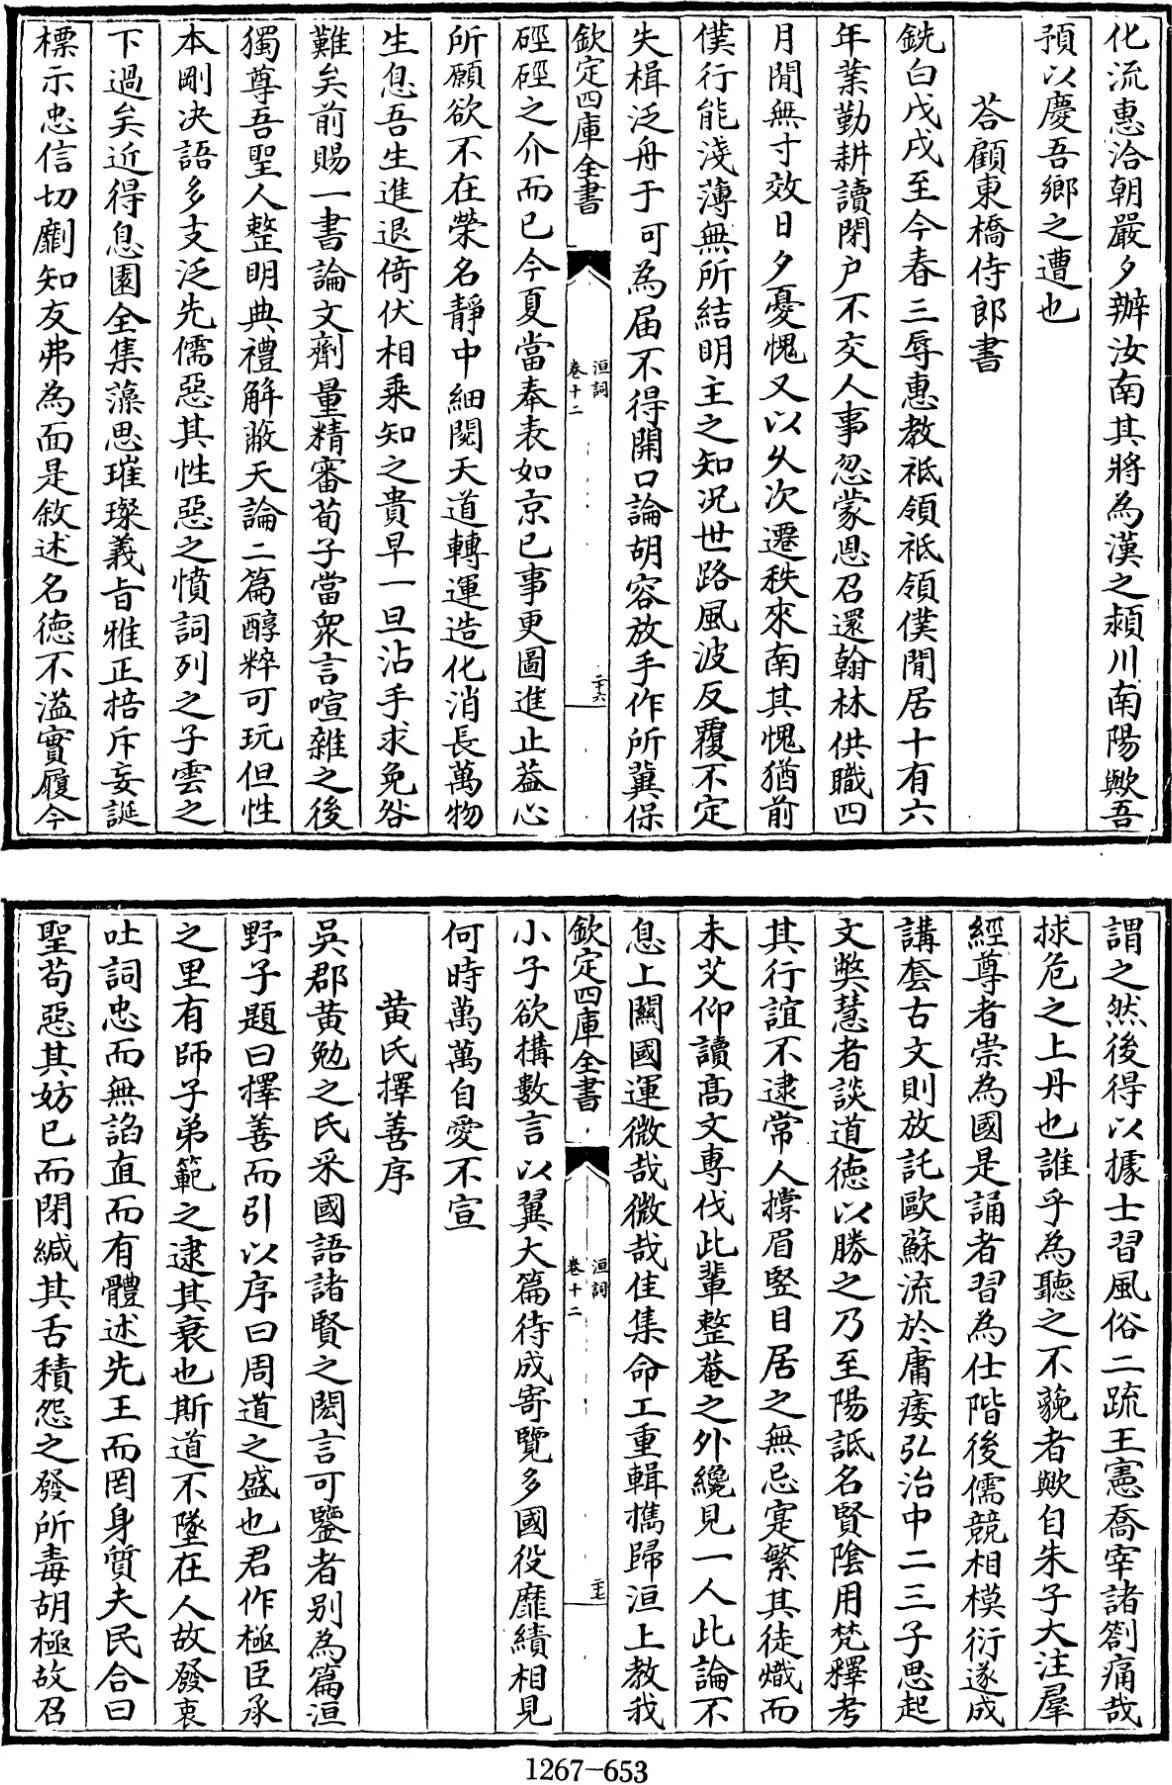 化流惠洽朝嚴夕辦汝南其將為漢之潁川南陽歟吾
預以慶吾鄉之遭也
荅顧東橋侍郎書
銑白戊戌至今春三辱惠教祗領祗領僕閒居十有六
年業勤耕讀閉户不交人事忽蒙恩召還翰林供職四
月閒無寸效日夕憂愧又以久次遷秩來南其愧猶前
僕行能淺薄無所結明主之知况世路風波反覆不定
失楫泛舟于何為届不得開口論胡容放手作所冀保
欽定四庫全書
洹詞
卷十二
二十六
硜硜之介而已今夏當奉表如京已事更圖進止葢心
所願欲不在榮名靜中細閱天道轉運造化消長萬物
生息吾生進退倚伏相乘知之貴早一旦沾手求免咎
難矣前賜一書論文劑量精審荀子當衆言喧雜之後
獨尊吾聖人整明典禮解蔽天論二篇醇粹可玩但性
本剛决語多支泛先儒惡其性惡之憤詞列之子雲之
下過矣近得息園全集藻思璀璨義旨雅正掊斥妄誕
標示忠信切劘知友弗為面是敘述名德不溢實履今
謂之然後得以據士習風俗二疏王憲喬宰諸劄痛哉
捄危之上丹也誰乎為聽之不藐者歟自朱子大注羣
經尊者崇為國是誦者習為仕階後儒競相模衍遂成
講套古文則放託歐蘇流於庸痿弘治中二三子思起
文獘慧者談道德以勝之乃至陽詆名賢陰用梵釋考
其行誼不逮常人撐眉竪目居之無忌寔繁其徒熾而
未艾仰讀髙文専伐此輩整菴之外纔見一人此論不
息上關國運微哉微哉佳集命工重輯携歸洹上教我
欽定四庫全書
洹詞
卷十二
二十七
小子欲搆數言以翼大篇待成寄覽多國役靡績相見
何時萬萬自愛不宣
黄氏擇善序
吳郡黄勉之氏采國語諸賢之閎言可鑒者别為篇洹
野子題曰擇善而引以序曰周道之盛也君作極臣承
之里有師子弟範之逮其衰也斯道不墜在人故發衷
吐詞忠而無諂直而有體述先王而罔身質夫民合曰
聖苟惡其妨已而閉緘其舌積怨之發所毒胡極故召
1267-653